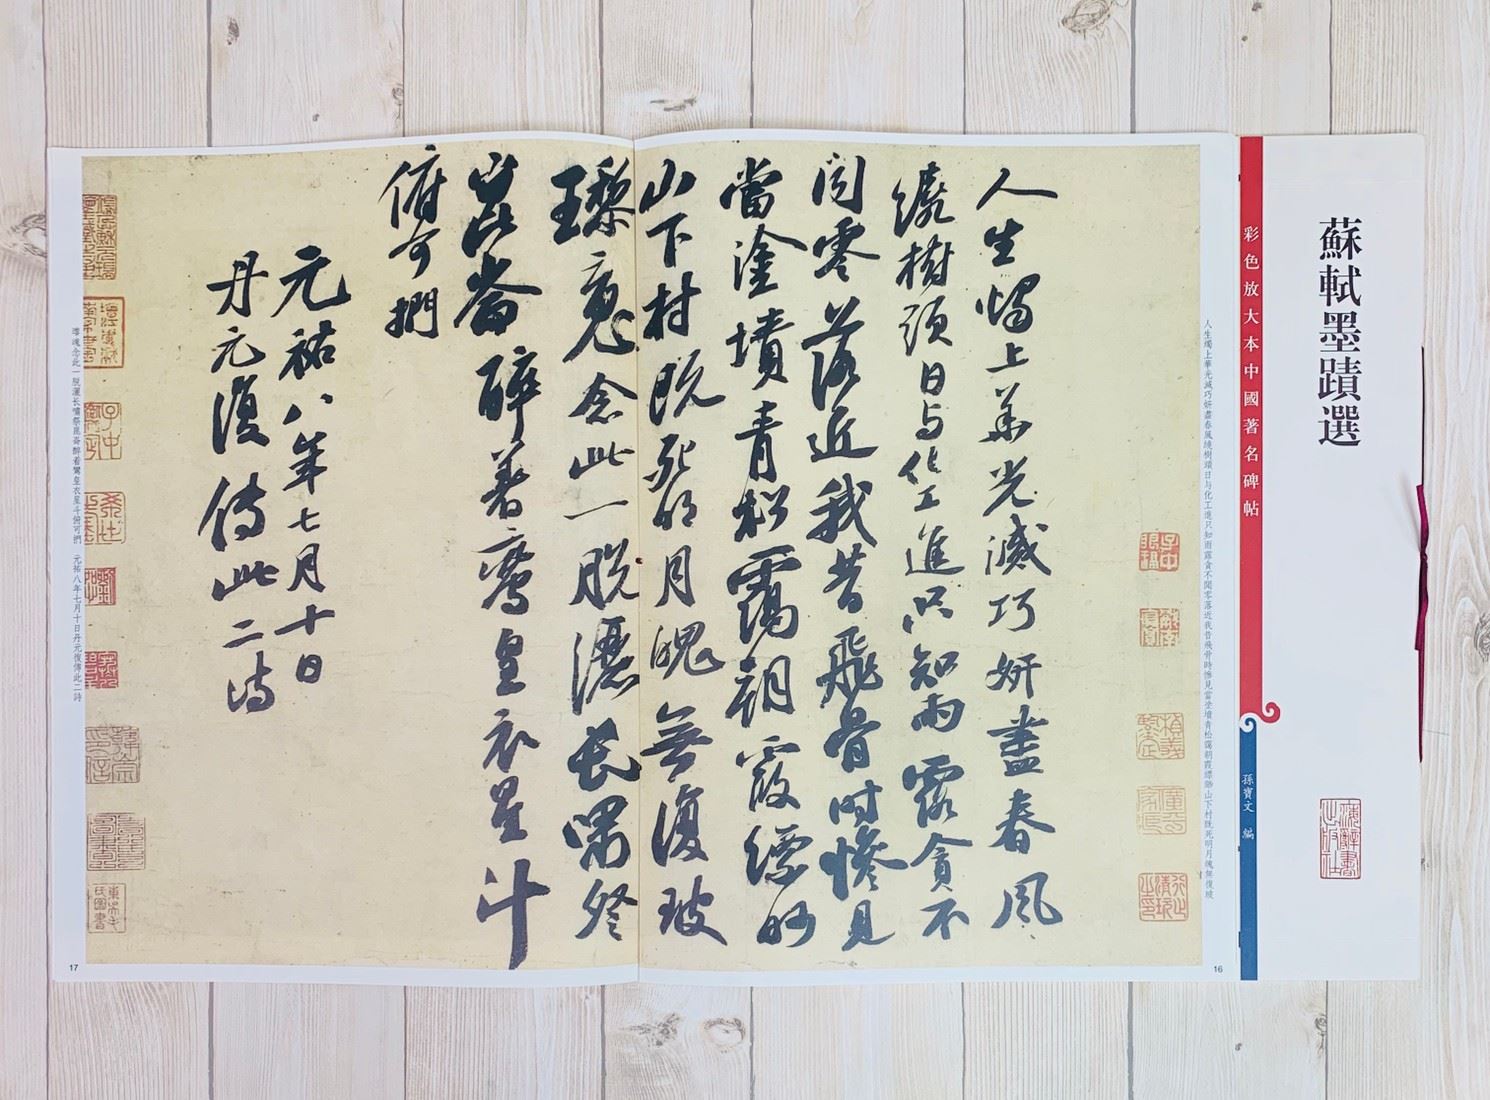 蘇軾墨蹟選
彩色放大本中國著名碑帖
孫寶文 編
人生燭上華光滅巧妍盡春風繞樹頭日与化工進只知雨露貪不聞零落近我昔飛骨時慘見當塗墳青松靄朝霞縹眇山下村既死明月魄無復玻
人生燭上華光滅巧妍盡春風
繞樹頭日与化工進只知雨露貪不
聞零落近我昔飛骨時慘見
當塗墳青松靄朝霞縹眇
山下村既死明月魄無復玻
瓈魂念此一脫灑長嘯祭
崑崙醉著鸞皇衣星斗
俯可捫
元祐八年七月十日
丹元復傳此二詩
瓈魂念此一脫灑長嘯祭崑崙醉着鸞皇衣星斗俯可捫 元祐八年七月十日丹元復傳此二詩
16
17